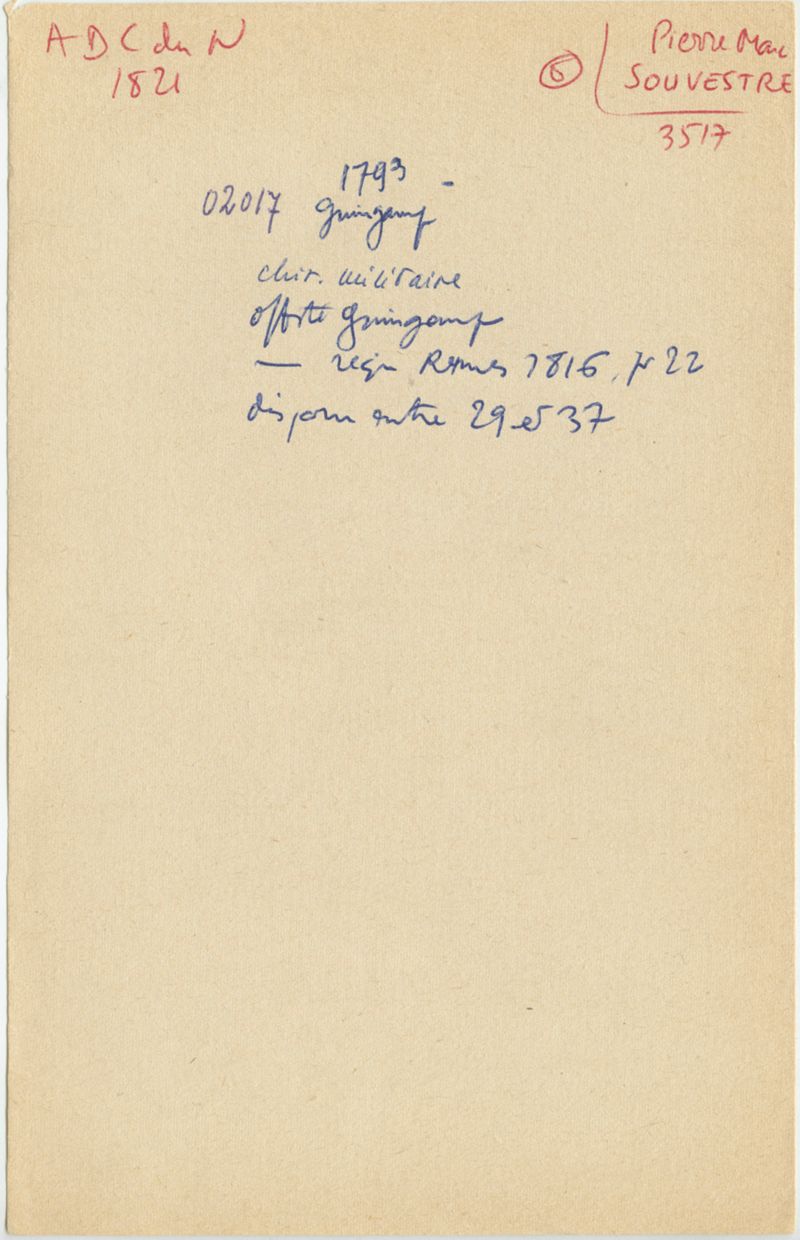 A D C du N
1821
6
Pierre Marc
SOUVESTRE
3517
1793 -
02017 Guingamp
chir. militaire
Guingamp
— reçu Rennes 1816, N 22
disparu entre 29 et 37